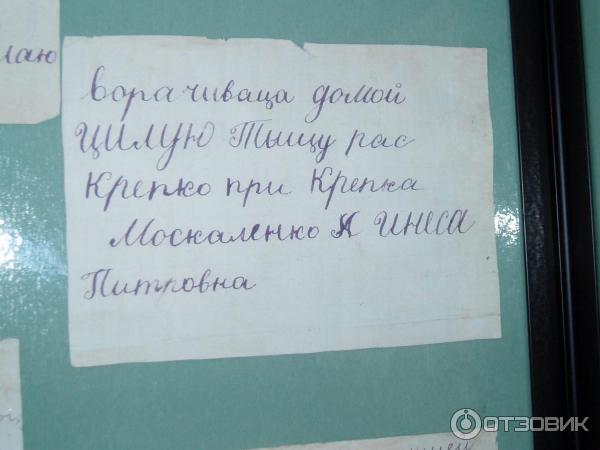 лаю
ворачиваца домой
ЦИЛУЮ Тыщу рас
Крепко при Крепка
Москаленко А ИНеСА
Питровна
ОТЗОВИК